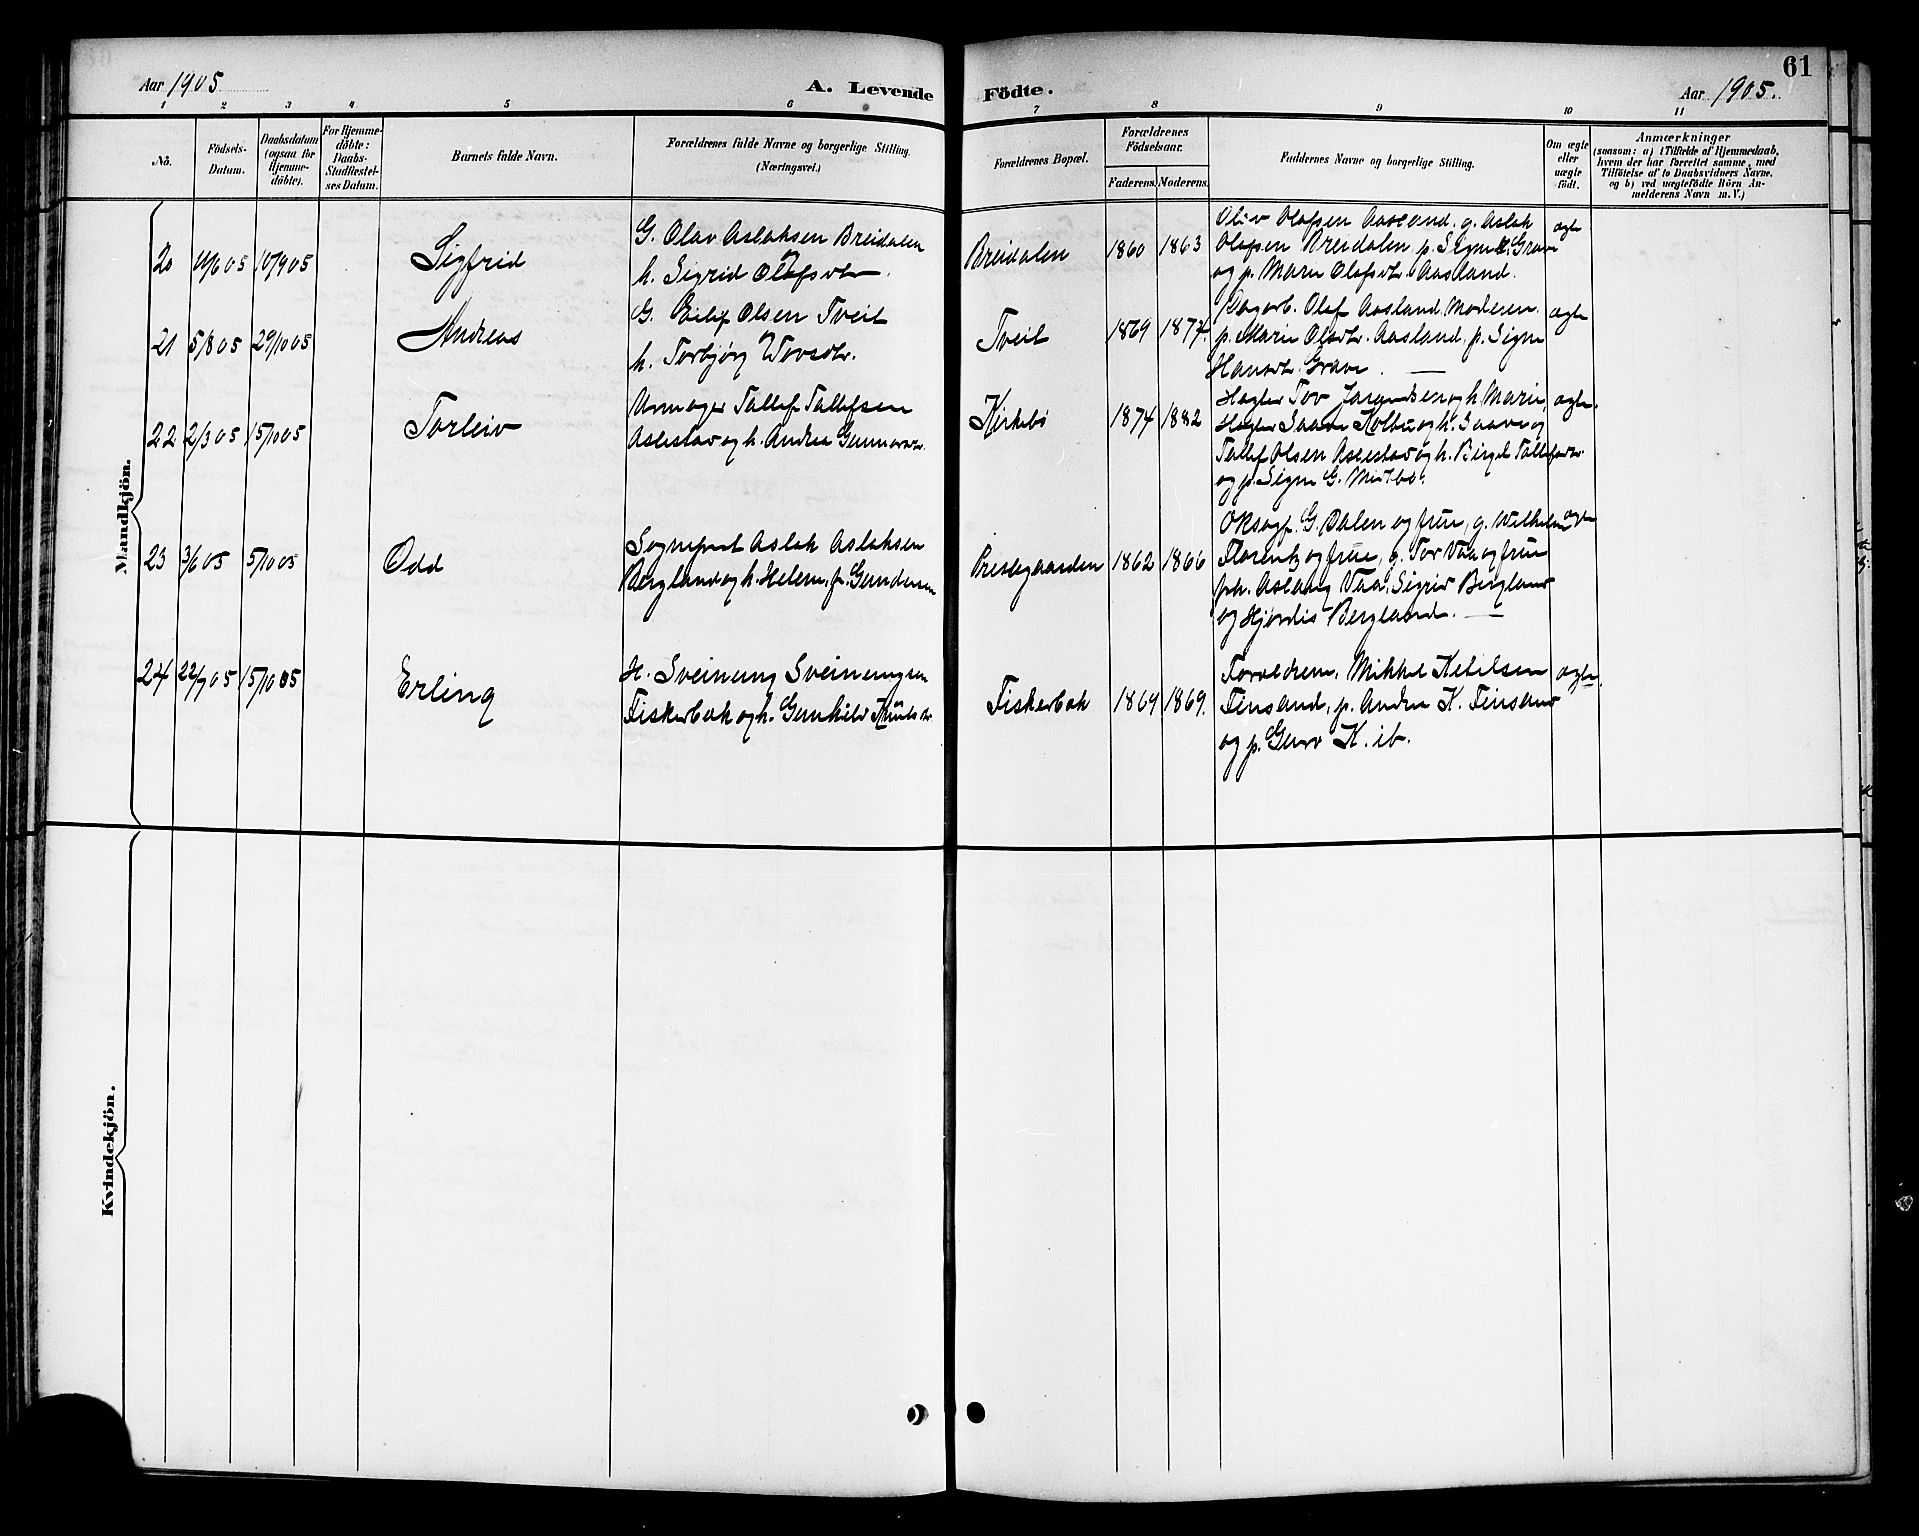 61
Aar 1905
A. Levende
Födte.
Aar 1905.
1 2 3 4 5 6 7 8 9 10 11
No.
Födsels-
Datum.
Daabsdatum
(ogsaa for
Hjemme-
döbte).
For Hjemme-
döbte:
Daabs-
Stadfæstel-
ses Datum.
Barnets fulde Navn.
Forældrenes fulde Navne og borgerlige Stilling.
(Næringsvei.)
Forældrenes Bopæl.
Forældrenes
Födselsaar.
Faderens. Moderens.
Faddernes Navne og borgerlige Stilling.
Om ægte
eller
uægte
födt.
Anmærkninger
(saasom: a) i Tilfælde af Hjemmedaab,
hvem der har forrettet samme, med
Tilföielse af to Daabsvidners Navne,
og b) ved uægtefödte Börn An-
melderens Navn m. V.)
Mandkjön.
20 10/6 05 10/9 05
Sigfrid
G. Olav Aslaksen Breidalen
h. Sigrid Olafsdtr.
Breidalen
1860 1863
Oliv Olafsen Aasland, g. Aslak
Olafsen Breidalen, p. Signe Grave
og p. Marie Olafsdtr. Aasland.
ægte
21 5/8 05 29/10 05
Andreas
G. Eilef Olsen Tveit
h. Torbjørg
Tveit
1869 1874.
Olaf Aasland, Moderen.
p. Marie Olsdtr. Aasland, p. Signe
Hansdtr. Grave.
ægte
22 2/3 05 15/10 05
Torleiv
Urmager Tallef Tallefsen
og h. Andrea Gunnarsdtr.
Kirkebö
1874 1882
Tov og h. Marie,
og
Tallef Olsen og h. Birgit Tallefsdtr
og p. Signe G. Midtbö.
ægte.
23 3/6 05 5/10 05
Odd
Sogneprest Aslak Aslaksen
Bergland og h. Helene, f. Gundersen
Prestegaarden
1862 1866
G. Dalen og frue, g. Wilhelm
Florentz og frue, g. Tor Vaa og frue
Aslaug Vaa, Sigrid Bergland
og Hjördis Bergland.
ægte
24 22/7 05 15/10 05
Erling
H. Sveinung Sveinungsen
Fiskerbæk og h. Gunhild Knudsdtr.
Fiskerbæk
1864 1869.
Forældrene, Mikkel Ketilsen
Finsand, p. Andrea K. Finsand
og p. Guro K. ib.
ægte.
Kvindekjön.